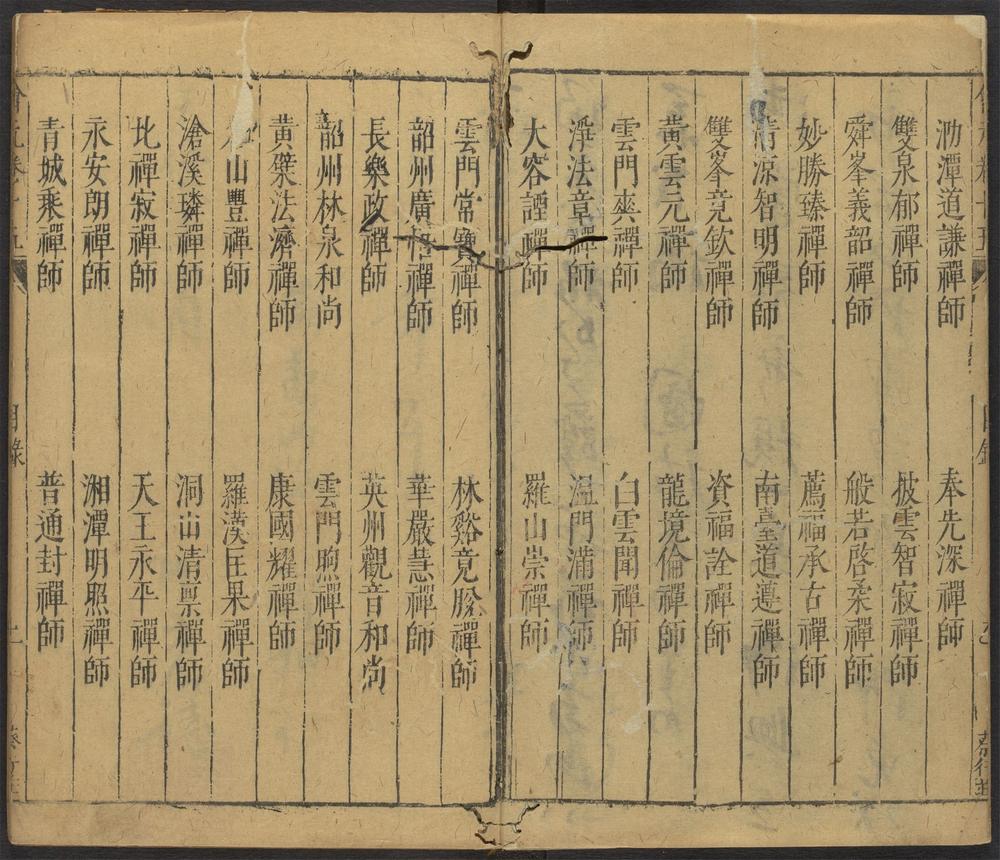 泐潭道謙禪師 奉先深禪師
雙泉郁禪師 披雲智寂禪師
舜峯義韶禪師 般若啓柔禪師
妙勝臻禪師 薦福承古禪師
清凉智明禪師 南臺道遵禪師
雙峯竟欽禪師 資福詮禪師
黃雲元禪師 龍境倫禪師
雲門爽禪師 白雲聞禪師
淨法章禪師 温門滿禪師
大容諲禪師 羅山崇禪師
雲門常寶禪師 林谿竟脫禪師
韶州廣悟禪師 華嚴慧禪師
長樂政禪師 英州觀音和尚
韶州林泉和尚 雲門煦禪師
黃檗法濟禪師 康國耀禪師
山豐禪師 羅漢匡果禪師
滄溪璘禪師 洞山清禀禪師
北禪寂禪師 天王永平禪師
永安朗禪師 湘潭明照禪師
青城乘禪師 普通封禪師
目錄